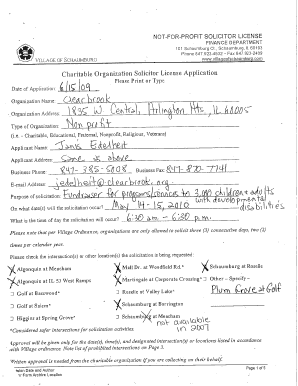 NOT-FOR-PROFIT SOLICITOR LICENSE
FINANCE DEPARTMENT
101 Schaumburg Ct., Schaumburg, IL 60193
Phone 847.923-4502 - Fax 847.923-2409
www.villageofschaumburg.com
VILLAGE OF SCHAUMBURG
Charitable Organization Solicitor License Application
Please Print or Type
Date of Application: 6/15/09
Organization Name: Clearbrook
Organization Address: 1835 W Central, Arlington Hts, IL 60005
Type of Organization: Non profit
(I.e. - Charitable, Educational, Fraternal, Nonprofit, Religious, Veterans)
Applicant Name: Janis Edelheit
Applicant Address: Same as above
Business Phone: 847-385-5008 Business Fax: 847-870-7741
E-mail Address: jedelheit@clearbrook.org
Purpose of solicitation: Fundraiser for programs/services to 3,000 children & adults
with developmental
disabilities
On what date(s) will the solicitation occur? May 14-15, 2010
What is the time of day the solicitation will occur? 6:30 am - 6:30 p.m.
Please note that per Village Ordinance, organizations are only allowed to solicit three (3) consecutive days, two (2)
times per calendar year.
Please check the intersection(s) or other location(s) the solicitation is being requested:
X Algonquin at Meacham X Mall Dr. at Woodfield Rd.* X Schaumburg at Roselle
X Algonquin at IL 53 West Ramps X Martingale at Corporate Crossing* Other - Specify -
Golf at Basswood* Roselle at Valley Lake* Plum Grove at Golf
Golf at Salem* X Schaumburg at Barrington
Higgins at Spring Grove* X Schaumburg at Meacham
not available
in 2007
*Considered safer intersections for solicitation activities.
Approval will be given only for the date(s), time(s), and designated intersection(s) or locations listed in accordance
with Village ordinance. Note list of prohibited intersections on Page 3.
Written approval is needed from the charitable organization if you are collecting on their behalf.
Page 1 of 5